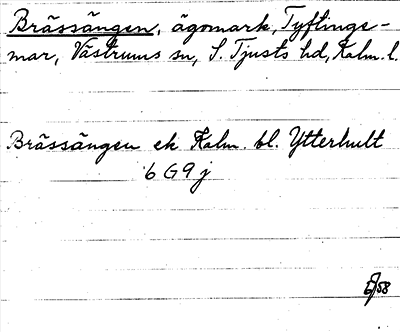 Brässängen, ägomark, Tyftinge-
mar, Västrums sn, S. Tjusts hd, Kalm. l.
Brässängen ek Kalm. bl. Ytterhult
6 G 9 j
58